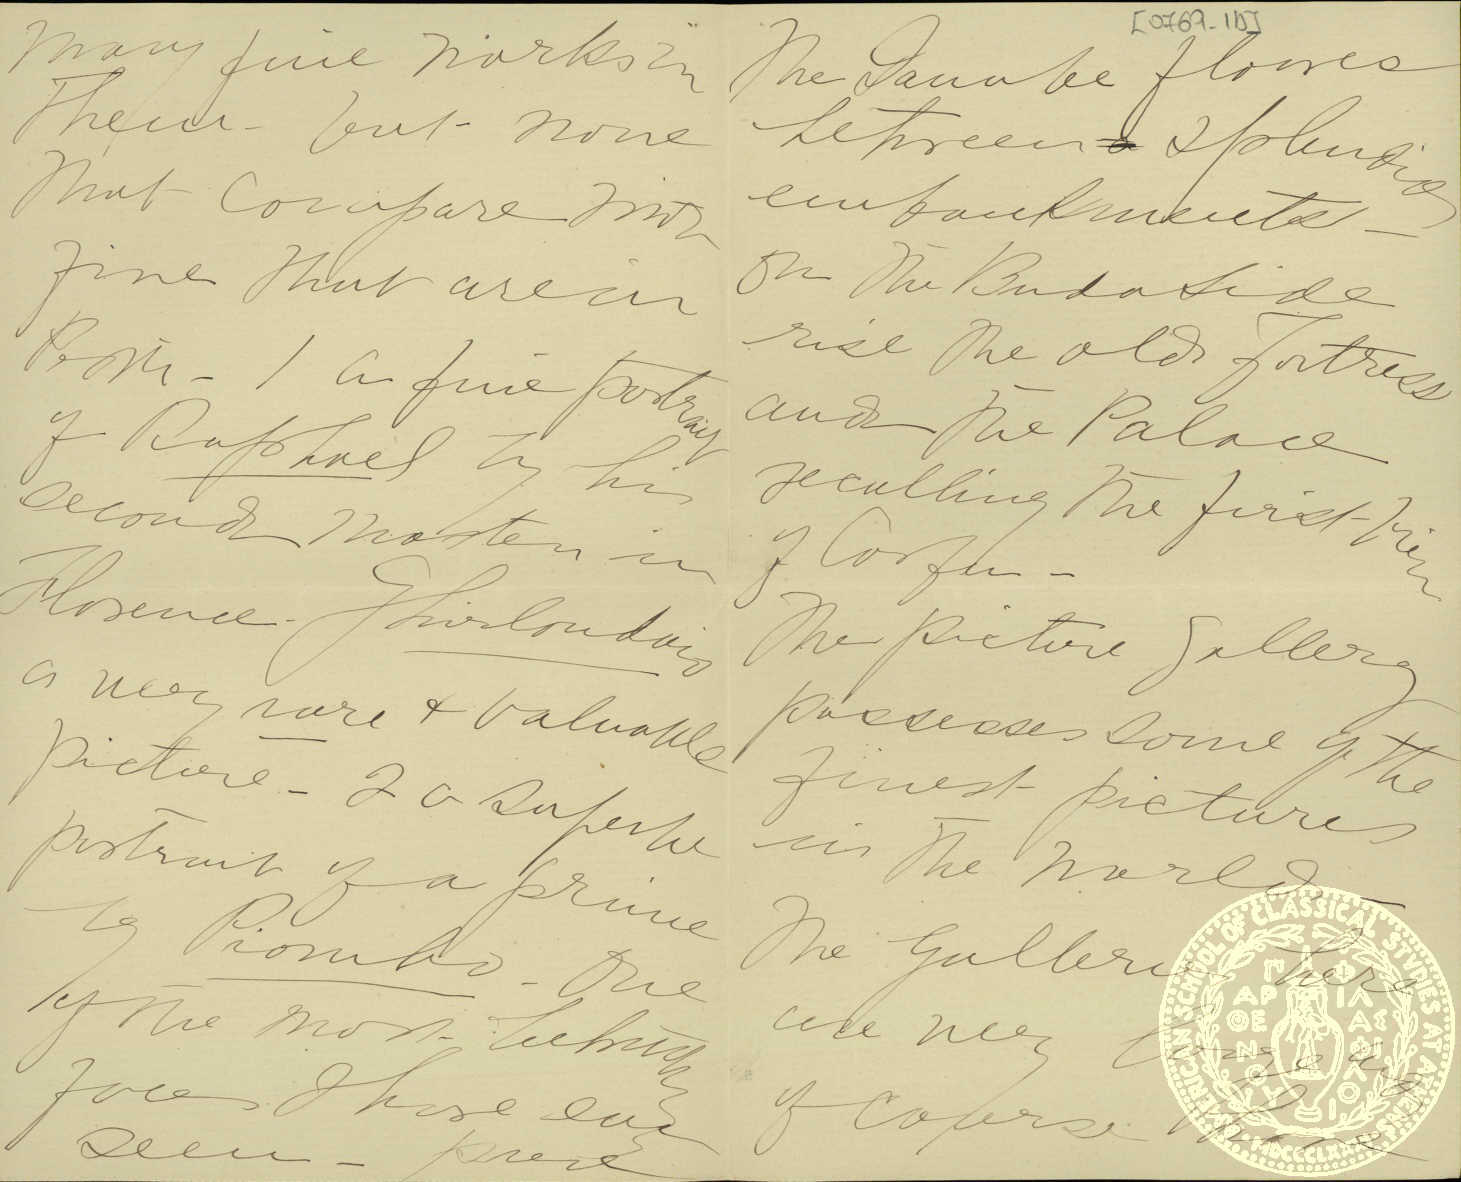 many fine works in
them - but none
that compare with
five that are in
Pesth - 1 a fine portrait
of Raphael by his
second master in
Florence - Ghirlandaio
a very rare & valuable
picture - 2 a superbe
portrait of a prince
by Piombo - One
of the most bewitching
faces I have ever
seen -
[0769-1b]
The Danube flows
between splendid
embankments -
On the Buda side
rise the old Fortress
and the Palace
recalling the first view
of Corfu -
The picture Gallery
possesses some of the
finest pictures
in the world -
The Galleries here
are very large and
of course there
AMERICAN SCHOOL OF CLASSICAL STUDIES AT ATHENS
MDCCCLXXXI
ΠΑΡΘΕΝΟΙ ΦΙΛΑΣ ΦΙΛΟΙ